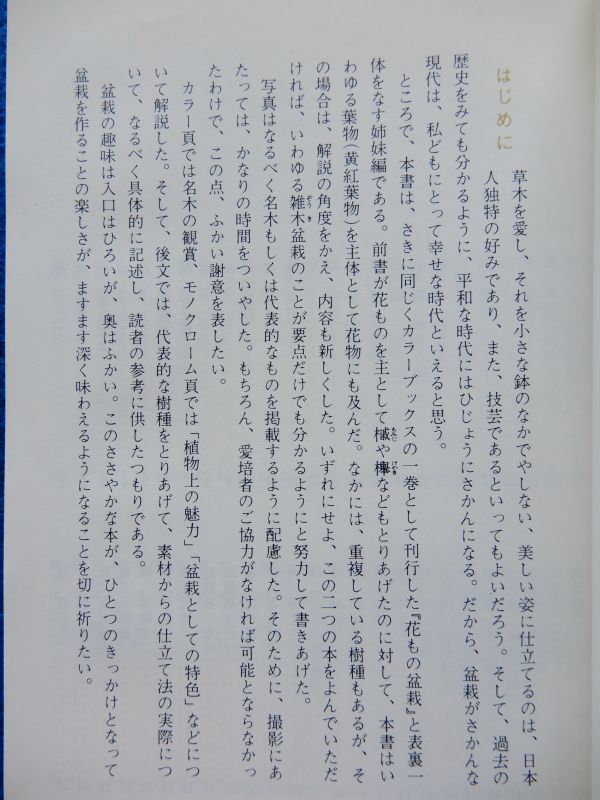 はじめに
草木を愛し、それを小さな鉢のなかでやしない、美しい姿に仕立てるのは、日本
人独特の好みであり、また、技芸であるといってもよいだろう。そして、過去の
歴史をみても分かるように、平和な時代にはひじょうにさかんになる。だから、盆栽がさかんな
現代は、私どもにとって幸せな時代といえると思う。
ところで、本書は、さきに同じくカラーブックスの一巻として刊行した『花もの盆栽』と表裏一
体をなす姉妹編である。前書が花ものを主として槭や欅などもとりあげたのに対して、本書はい
わゆる葉物(黄紅葉物)を主体として花物にも及んだ。なかには、重複している樹種もあるが、そ
の場合は、解説の角度をかえ、内容も新しくした。いずれにせよ、この二つの本をよんでいただ
ければ、いわゆる雑木盆栽のことが要点だけでも分かるようにと努力して書きあげた。
写真はなるべく名木もしくは代表的なものを掲載するように配慮した。そのために、撮影にあ
たっては、かなりの時間をついやした。もちろん、愛培者のご協力がなければ可能とならなかっ
たわけで、この点、ふかい謝意を表したい。
カラー頁では名木の観賞、モノクローム頁では「植物上の魅力」「盆栽としての特色」などにつ
いて解説した。そして、後文では、代表的な樹種をとりあげて、素材からの仕立て法の実際につ
いて、なるべく具体的に記述し、読者の参考に供したつもりである。
盆栽の趣味は入口はひろいが、奥はふかい。このささやかな本が、ひとつのきっかけとなって
盆栽を作ることの楽しさが、ますます深く味わえるようになることを切に祈りたい。